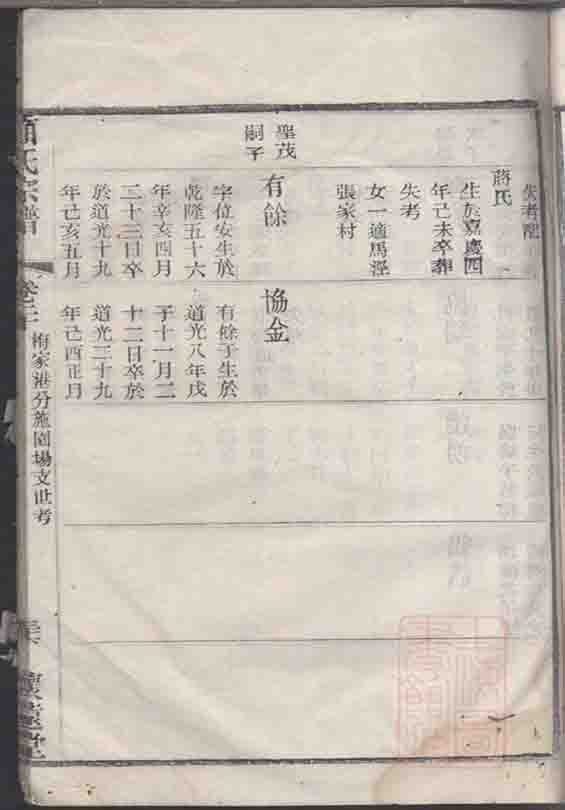 失考配
蔣氏
生於嘉慶四
年己未卒葬
失考
女一適馬涇
張家村
聖茂
嗣子
有餘
字位安生於
乾隆五十六
年辛亥四月
二十三日卒
於道光十九
年己亥五月
協金
有餘子生於
道光八年戊
子十一月二
十二日卒於
道光二十九
年己酉正月
氏宗譜
卷之二
梅家港分施園場支世考
懷遠堂